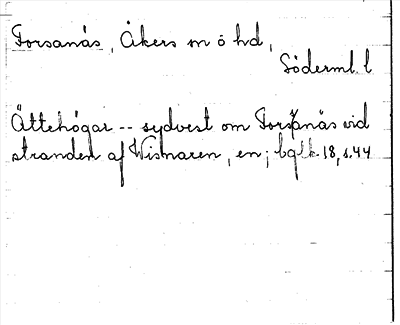 Forsanäs, Åkers m ö hd,
Söderml. l
Ättehögar -- sydvest om Forsanäs vid
stranden af Wismaren, en; bglk 18, s. 44